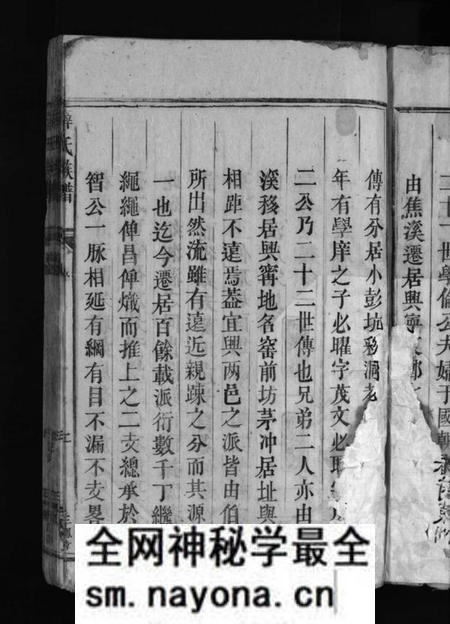 二十一世學倫公夫婦于國朝
由焦溪遷居興寧
傳有分居小彭坑
年有學庠之子必曜字茂文必
二公乃二十二世傳也兄弟二人亦由
溪移居興甯地名窑前坊茅冲居址與
相距不遠焉葢宜興两邑之派皆由伯
所出然流雖有遠近親踈之分而其源
一也迄今遷居百餘載派衍數千丁繼
繩繩俾昌俾熾而推上之二支總承於
智公一脉相延有綱有目不漏不支畧
氏族譜
全网神秘学最全
sm.nayona.cn